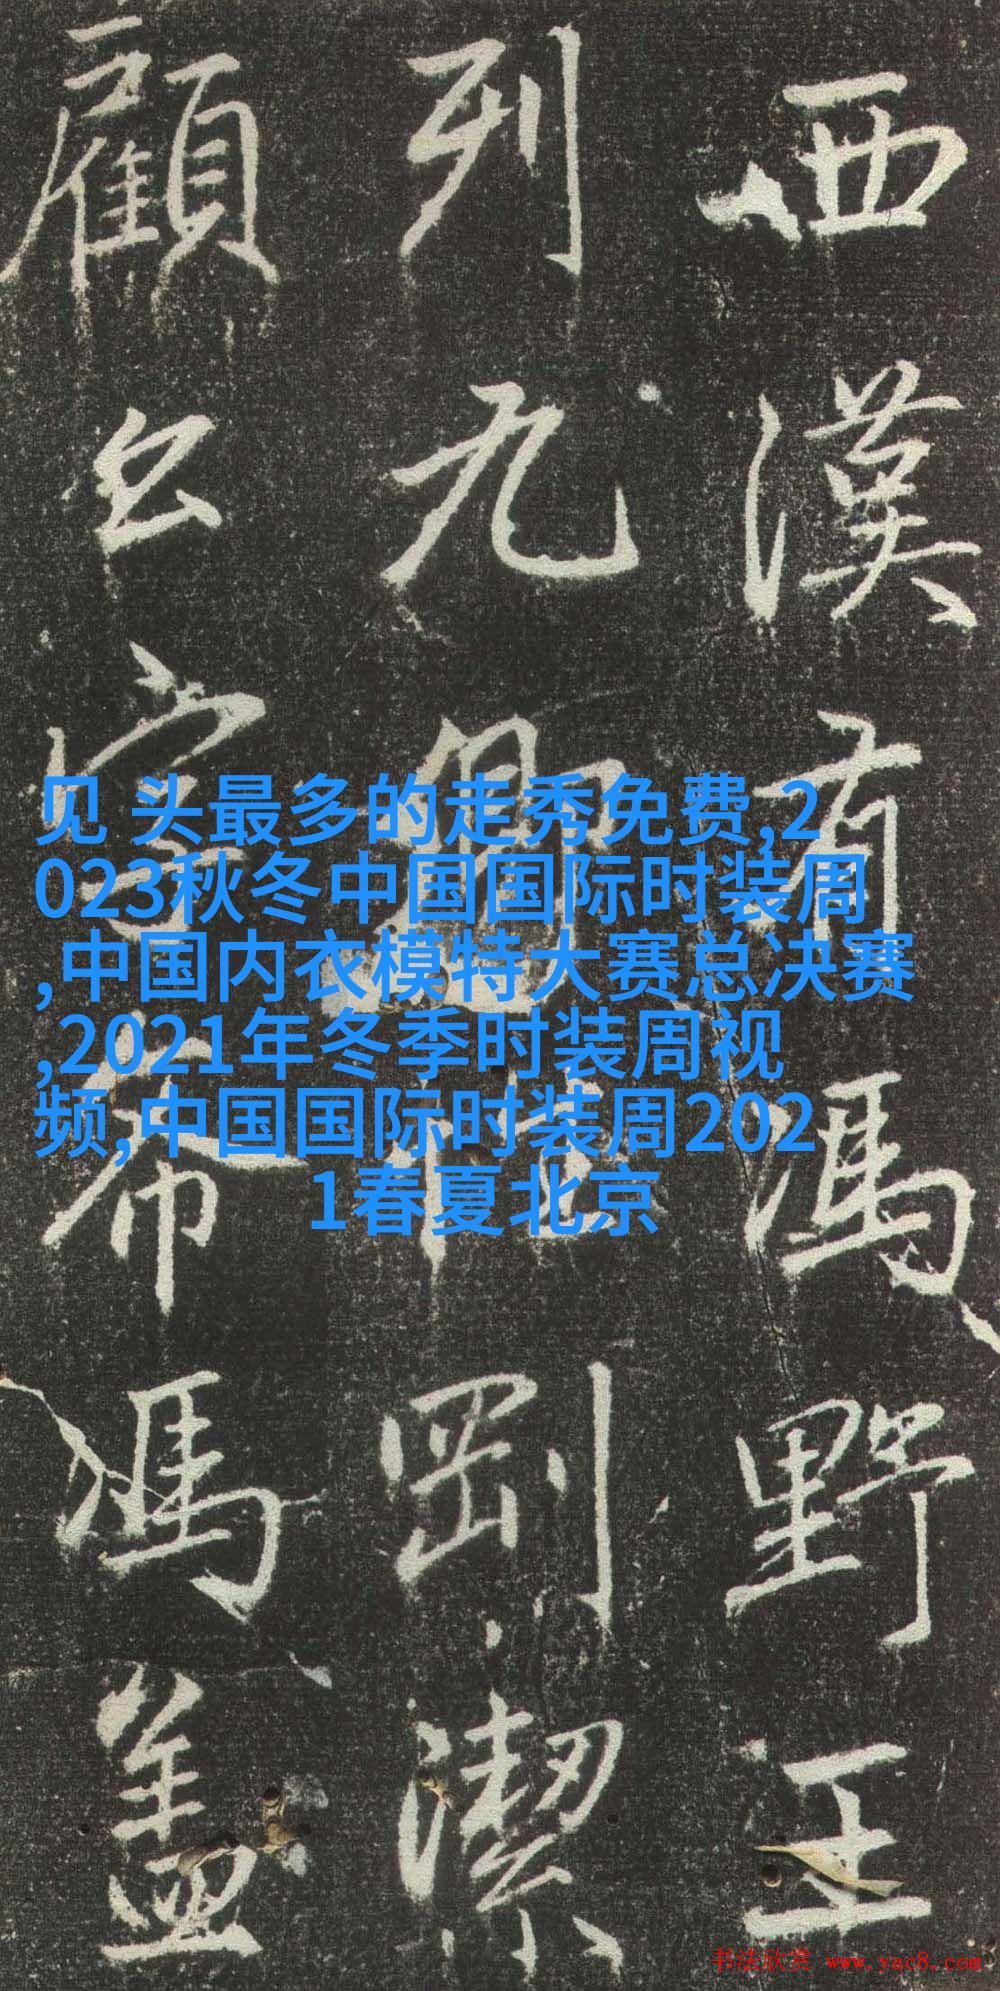 西漢有馮野王
列九剛潔
顧公字希馮蓋
见 头最多的走秀免费,2
023秋冬中国国际时装周
,中国内衣模特大赛总决赛
,2021年冬季时装周视
频,中国国际时装周202
1春夏北京
书法欣赏 www.yac8.com